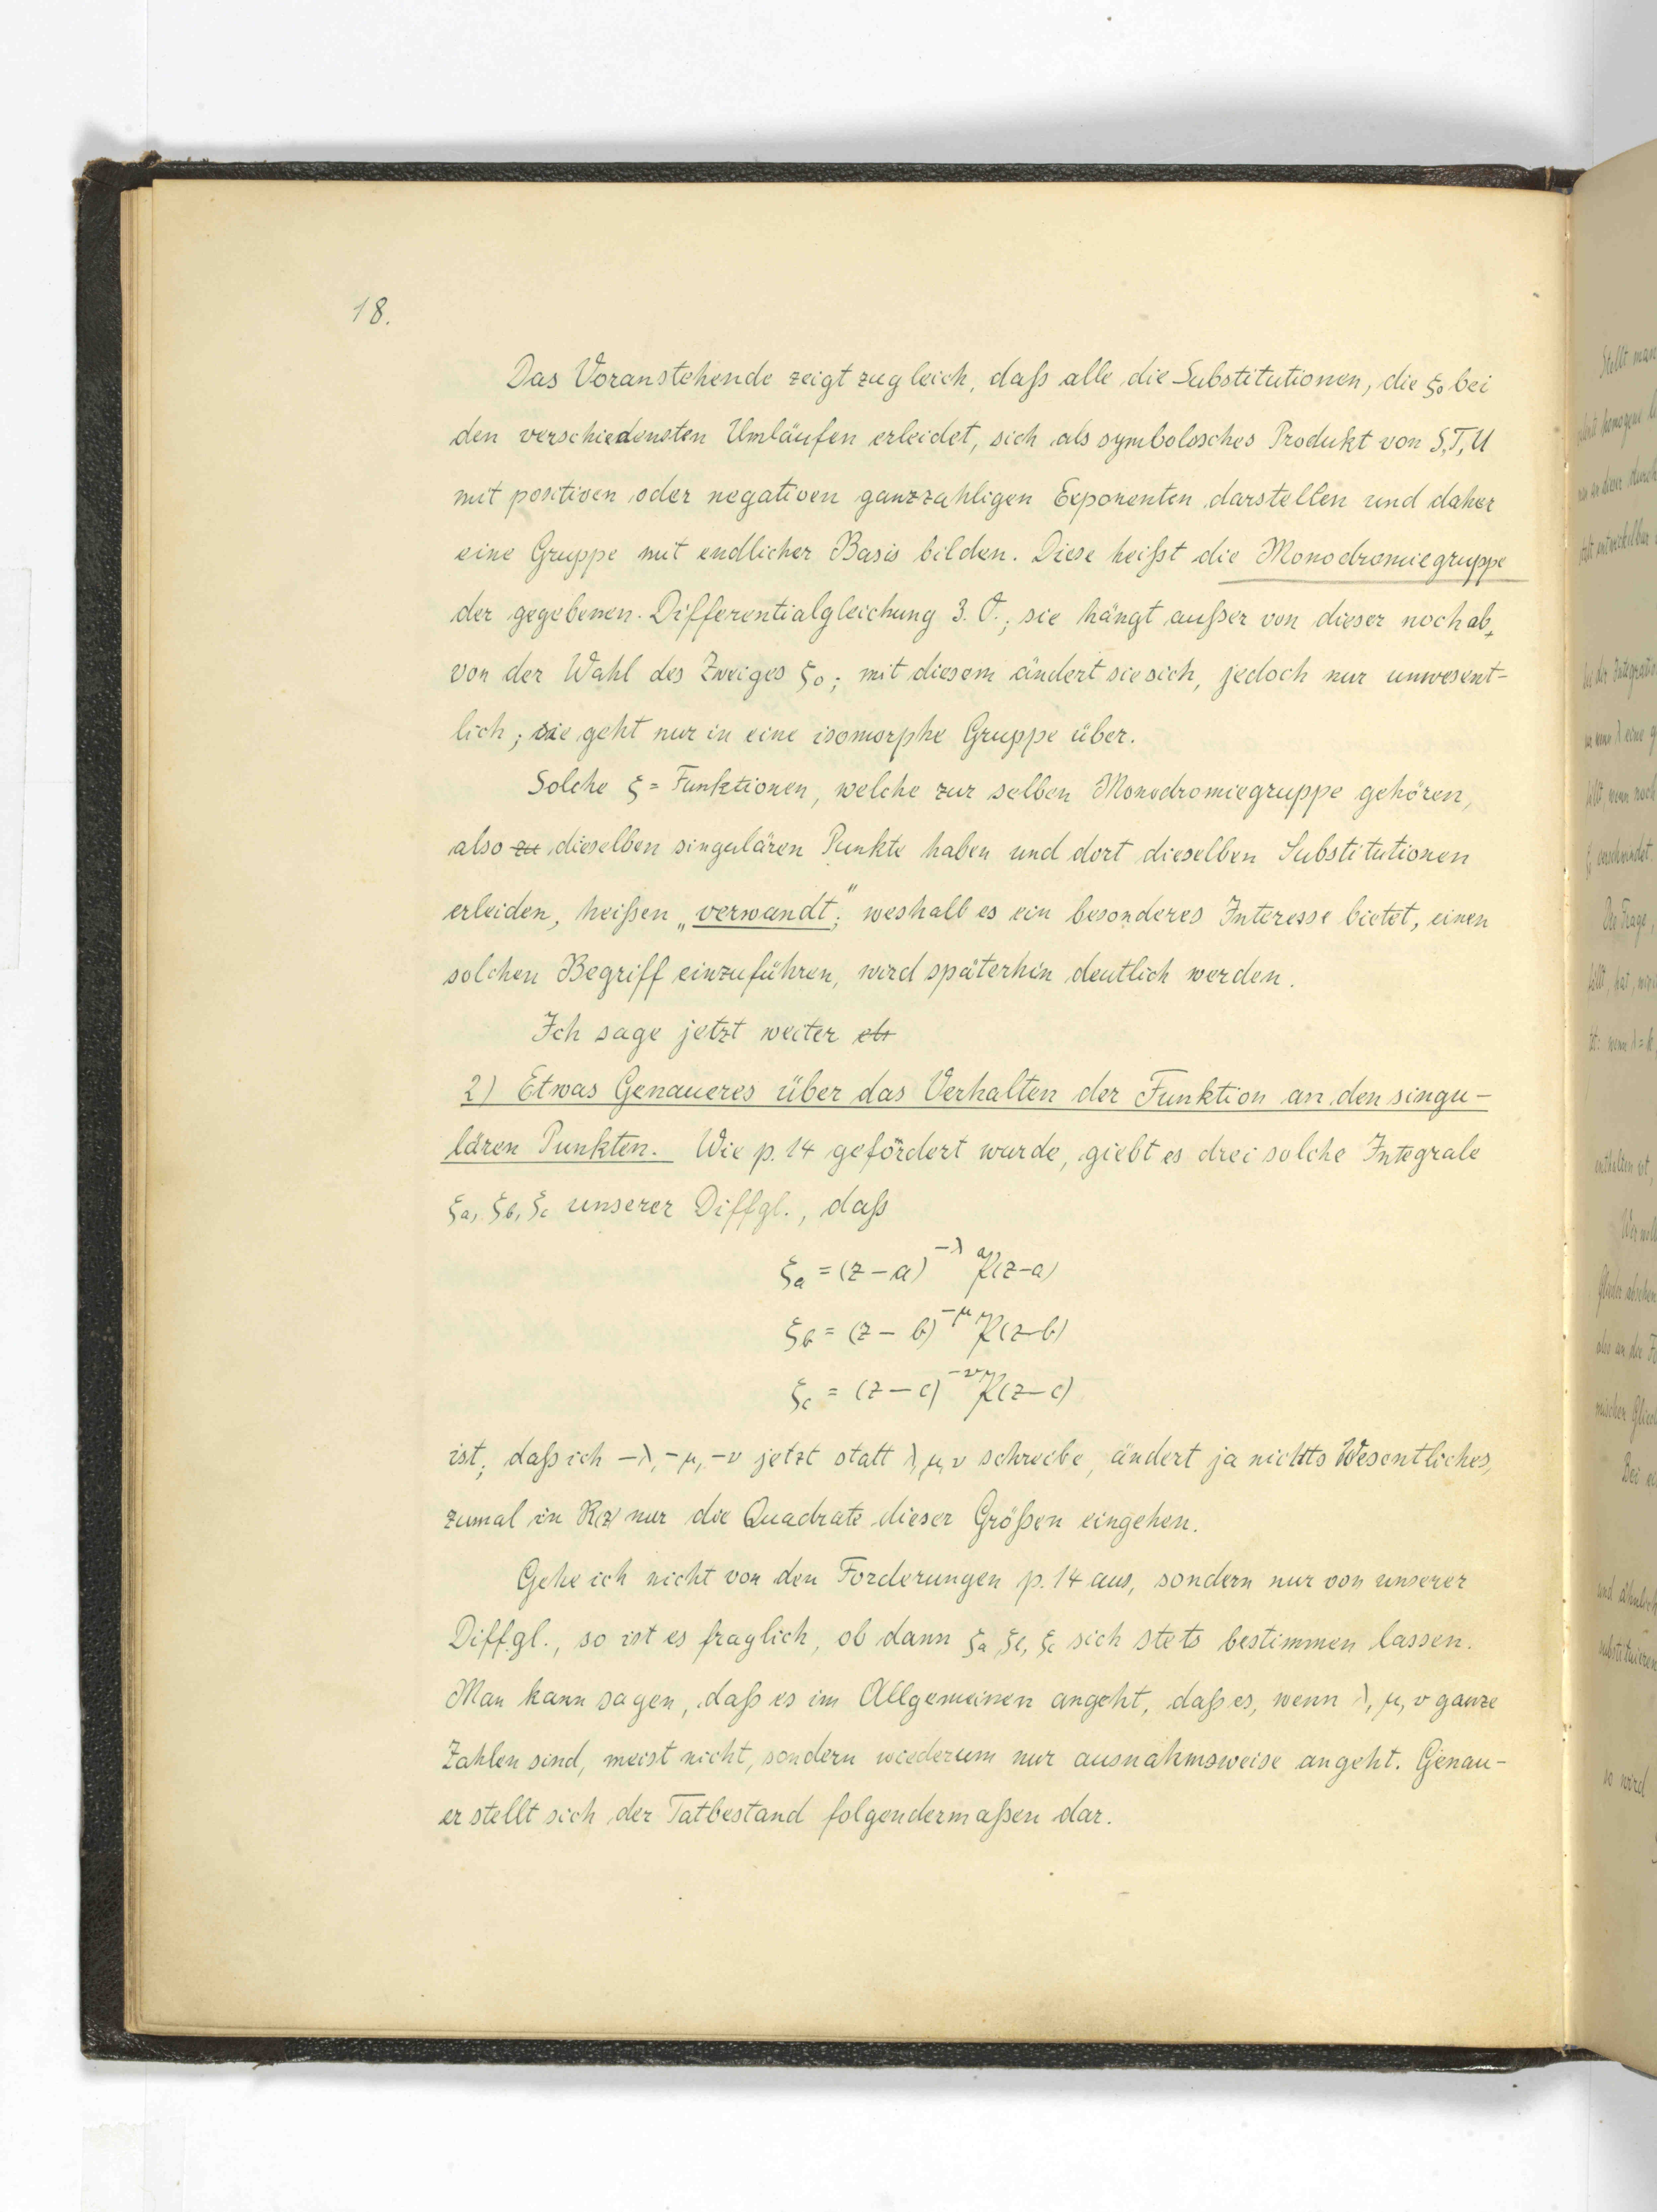 18.
Das Voranstehende zeigt zugleich, daß alle die Substitutionen, die ξ₀ bei
den verschiedensten Umläufen erleidet, sich als symbolosches Produkt von S,T,U
mit positiven oder negativen ganzzahligen Exponenten darstellen und daher
eine Gruppe mit endlicher Basis bilden. Diese heißt die Monodromiegruppe
der gegebenen Differentialgleichung 3. O.; sie hängt außer von dieser noch ab,
von der Wahl des Zweiges ξ₀; mit diesem ändert sie sich, jedoch nur unwesent-
lich; sie geht nur in eine isomorphe Gruppe über.
Solche ξ= Funktionen, welche zur selben Monodromiegruppe gehören,
also zu dieselben singulären Punkte haben und dort dieselben Substitutionen
erleiden, heißen „verwandt“; weshalb es ein besonderes Interesse bietet, einen
solchen Begriff einzuführen, wird späterhin deutlich werden.
Ich sage jetzt weiter
2) Etwas Genaueres über das Verhalten der Funktion an den singu-
lären Punkten. Wie p. 14 gefördert wurde, giebt es drei solche Integrale
ξa, ξb, ξc unserer Diffgl., daß
ξa = (z-a)^-λ P(z-a)
ξb = (z-b)^-μ P(z-b)
ξc = (z-c)^-ν P(z-c)
ist; daß ich -λ, -μ, -ν jetzt statt λ, μ, ν schreibe, ändert ja nichts Wesentliches,
zumal in R(z) nur die Quadrate dieser Größen eingehen.
Gehe ich nicht von den Forderungen p. 14 aus, sondern nur von unserer
Diffgl., so ist es fraglich, ob dann ξa, ξb, ξc sich stets bestimmen lassen.
Man kann sagen, daß es im Allgemeinen angeht, daß es, wenn λ, μ, ν ganze
Zahlen sind, meist nicht, sondern wiederum nur ausnahmsweise angeht. Genau-
er stellt sich der Tatbestand folgendermaßen dar.